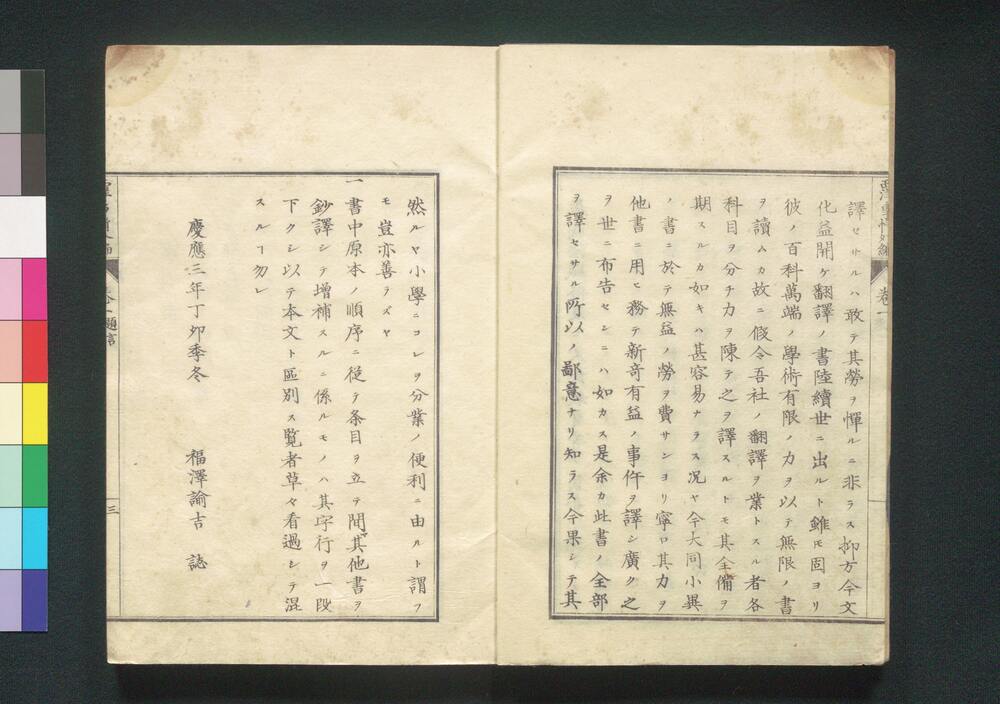 譯セサルハ敢テ其勞ヲ憚ルニ非ラス抑方今文
化益開ケ翻譯ノ書陸續世ニ出ルト雖モ固ヨリ
彼ノ百科萬端ノ學術有限ノ力ヲ以テ無限ノ書
ヲ讀ムカ故ニ假令吾社ノ翻譯ヲ業トスル者各
科目ヲ分チ力ヲ陳テ之ヲ譯スルトモ其全備ヲ
期スルカ如キハ甚容易ナラス况ヤ今大同小異
ノ書ニ於テ無益ノ勞ヲ費サンヨリ寧ロ其力ヲ
他書ニ用ヒ務テ新奇有益ノ事件ヲ譯シ廣ク之
ヲ世ニ布告センニハ如カス是余カ此書ノ全部
ヲ譯セサル所以ノ鄙意ナリ知ラス今果シテ其
然ルヤ小學ニコレヲ分業ノ便利ニ由ルト謂フ
モ豈亦善ラズヤ
一書中原本ノ順序ニ從テ条目ヲ立テ間其他書ヲ
鈔譯シテ增補スルニ係ルモノハ其字行ヲ一段
下クシ以テ本文ト區別ス覧者草々看過シテ混
スルヿ勿レ
慶應三年丁卯季冬 福澤諭吉 誌
卷一
題言
三